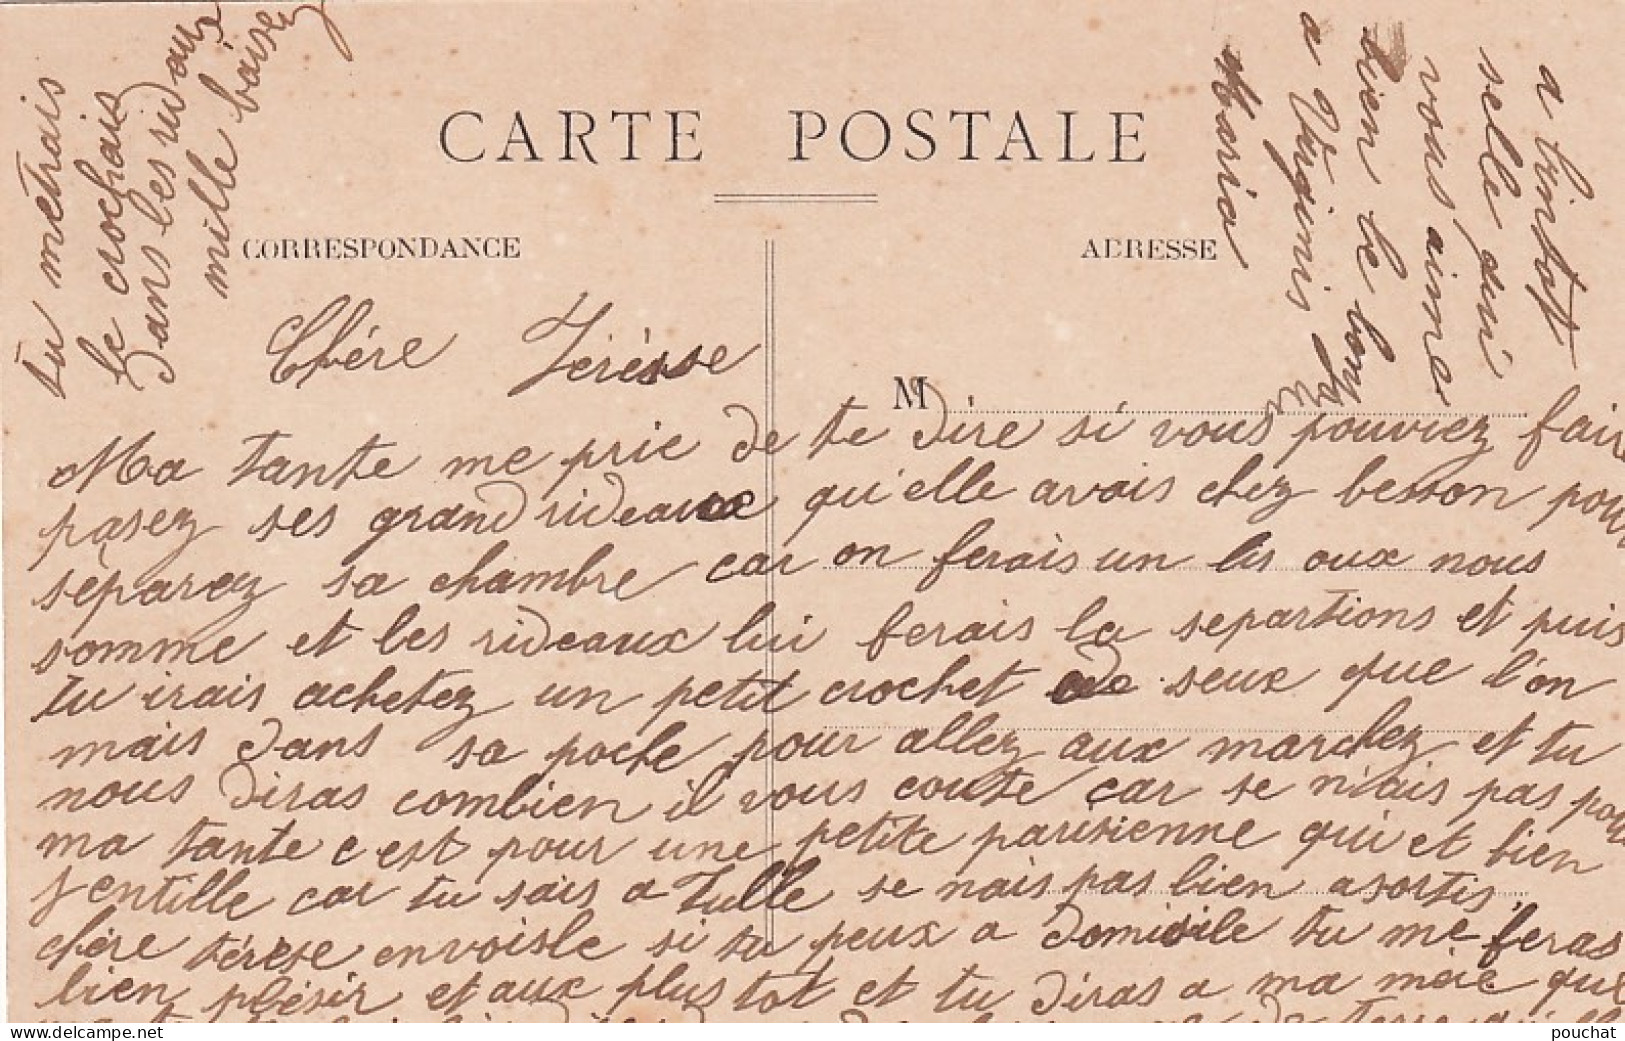 CARTE POSTALE
CORRESPONDANCE
ADRESSE
M
Chére Térésse
Ma tante me prie de te dire si vous pouviez faire
pasez ses grand rideaux qu'elle avais chez besson pour
séparez sa chambre car on ferais un lis oux nous
somme et les rideaux lui ferais la separtions et puis
tu irais achetez un petit crochet de seux que l'on
mais dans sa poche pour allez aux marchez et tu
nous diras combien il vous coute car se n'ais pas pour
ma tante c est pour une petite parisienne qui et bien
jentille car tu sais a Tulle se nais pas bien asortis.
chére térése envoisle si tu peux a domicile tu me feras
bien plésir et aux plus tot et tu diras a ma mére que
tu métrais
le crochais
dans les rideaux
mille baisez
a bintot
selle qui
vous aime
bien le bonjour
a Virginis
Maria
pouchat
www.delcampe.net